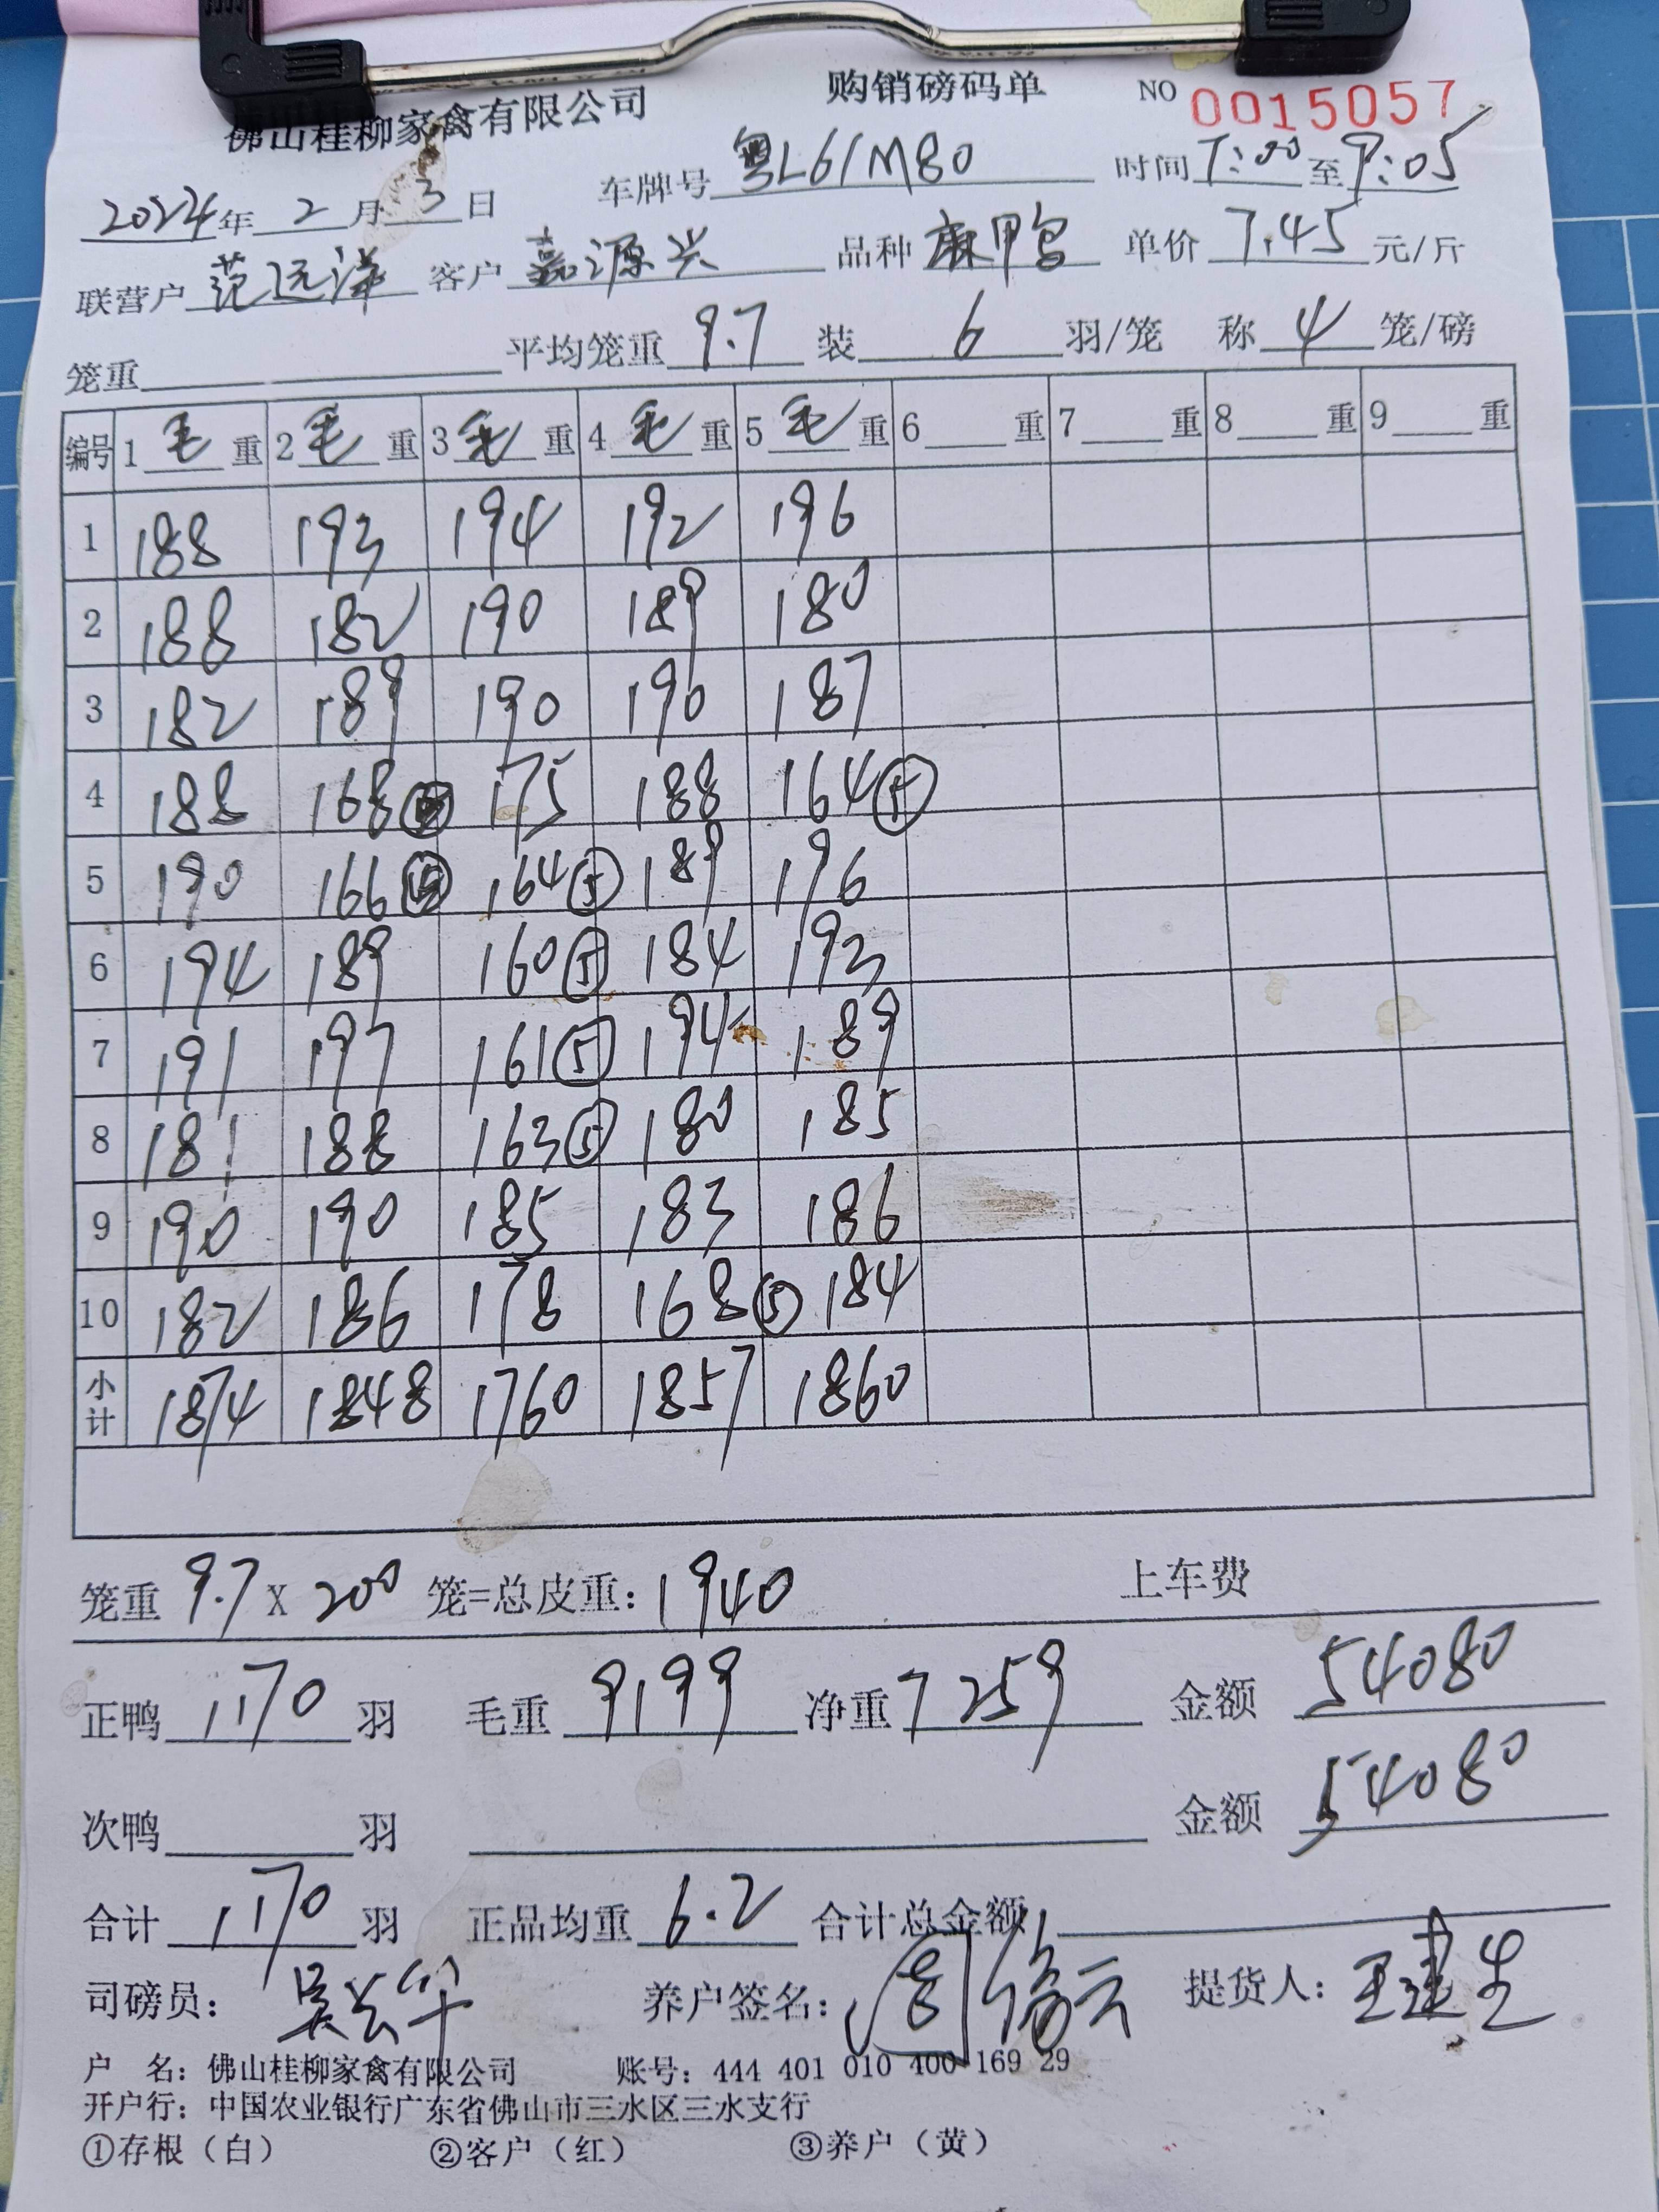 佛山桂柳家禽有限公司 购销磅码单 NO 0015057
2024年 2 月 3 日 车牌号 粤L61M80 时间 7:00 至 9:05
联营户 范远洋 客户 嘉源兴 品种 麻甲鸟 单价 7.45 元/斤
笼重 平均笼重 9.7 装 6 羽/笼 称 4 笼/磅
编号 1 毛 重 2 毛 重 3 毛 重 4 毛 重 5 毛 重 6 重 7 重 8 重 9 重
1 188 193 194 192 196
2 188 182 190 189 180
3 182 189 190 190 187
4 188 168 175 188 164⑤
5 190 166 164⑤ 189 196
6 194 189 160⑤ 184 193
7 191 197 161⑤ 194 189
8 181 188 163⑤ 180 185
9 190 190 185 183 186
10 182 186 178 168⑤ 184
小计 1874 1848 1760 1857 1860
笼重 9.7 X 200 笼=总皮重: 1940 上车费
正鸭 1170 羽 毛重 9199 净重 7259 金额 54080
次鸭 羽 金额 54080
合计 1170 羽 正品均重 6.2 合计总金额
司磅员: 养户签名: 提货人: 王建生
户 名: 佛山桂柳家禽有限公司 账号: 444 401 010 400 169 29
开户行: 中国农业银行广东省佛山市三水区三水支行
①存根（白） ②客户（红） ③养户（黄）